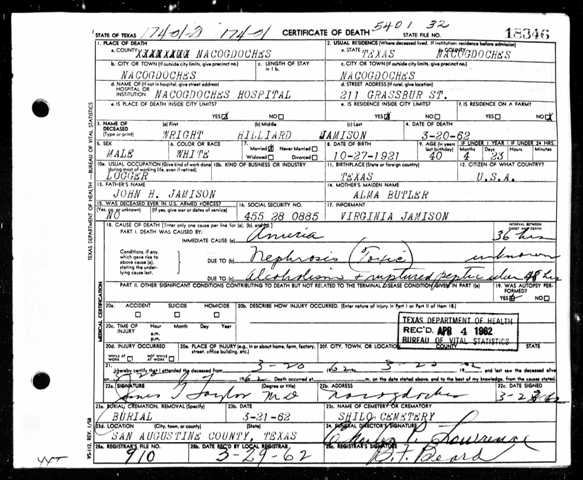 17401-2 17401 5401 32
STATE OF TEXAS CERTIFICATE OF DEATH STATE FILE NO. 18346
1. PLACE OF DEATH 2. USUAL RESIDENCE (Where deceased lived. If institution: residence before admission)
a. COUNTY NACOGDOCHES a. STATE TEXAS b. COUNTY NACOGDOCHES
b. CITY OR TOWN (If outside city limits, give precinct no.) c. LENGTH OF STAY in 1 b. c. CITY OR TOWN (If outside city limits, give precinct no.)
NACOGDOCHES NACOGDOCHES
d. NAME OF (If not in hospital, give street address) HOSPITAL OR INSTITUTION NACOGDOCHES HOSPITAL d. STREET ADDRESS (If rural, give location) 211 GRASSBUR ST.
e. IS PLACE OF DEATH INSIDE CITY LIMITS? e. IS RESIDENCE INSIDE CITY LIMITS? f. IS RESIDENCE ON A FARM?
YES NO YES NO YES NO
3. NAME OF DECEASED (Type or print) (a) First (b) Middle (c) Last 4. DATE OF DEATH
WRIGHT HILLIARD JAMISON 3-20-62
5. SEX 6. COLOR OR RACE 7. Married Never Married Widowed Divorced 8. DATE OF BIRTH 9. AGE (In years last birthday) IF UNDER 1 YEAR IF UNDER 24 HRS.
MALE WHITE 10-27-1921 40 4 23
10a. USUAL OCCUPATION (Give kind of work done during most of working life, even if retired) 10b. KIND OF BUSINESS OR INDUSTRY 11. BIRTHPLACE (State or foreign country) 12. CITIZEN OF WHAT COUNTRY?
LOGGER TEXAS U.S.A.
13. FATHER'S NAME 14. MOTHER'S MAIDEN NAME
JOHN H. JAMISON ALMA BUTLER
15. WAS DECEASED EVER IN U.S. ARMED FORCES? 16. SOCIAL SECURITY NO. 17. INFORMANT
(Yes, no, or unknown) (If yes, give war or dates of service)
NO 455 28 0885 VIRGINIA JAMISON
18. CAUSE OF DEATH [Enter only one cause per line for (a), (b), and (c).] INTERVAL BETWEEN ONSET AND DEATH
PART I. DEATH WAS CAUSED BY:
IMMEDIATE CAUSE (a) Anuria 36 hrs
Conditions, if any, which gave rise to above cause (a), stating the underlying cause last.
DUE TO (b) Nephrosis (Toxic) unknown
DUE TO (c) Alcoholism & ruptured peptic ulcer 48 hrs
PART II. OTHER SIGNIFICANT CONDITIONS CONTRIBUTING TO DEATH BUT NOT RELATED TO THE TERMINAL DISEASE CONDITION GIVEN IN PART I (a) 19. WAS AUTOPSY PERFORMED?
YES NO
20a. ACCIDENT SUICIDE HOMICIDE 20b. DESCRIBE HOW INJURY OCCURRED. (Enter nature of injury in Part I or Part II of item 18.)
20c. TIME OF INJURY Hour Month Day Year
a.m.
p.m.
TEXAS DEPARTMENT OF HEALTH
REC'D APR 4 1962
BUREAU OF VITAL STATISTICS
20d. INJURY OCCURRED 20e. PLACE OF INJURY (e.g., in or about home, farm, factory, street, office building, etc.) 20f. CITY, TOWN, OR LOCATION COUNTY STATE
WHILE AT WORK NOT WHILE AT WORK
21. I hereby certify that I attended the deceased from 3-20 and last saw the deceased alive
Death occurred at m. on the date stated above, and to the best of my knowledge, from the causes stated.
22a. SIGNATURE (Degree or title) 22b. ADDRESS 22c. DATE SIGNED
Taylor M D Nacogdoches
23a. BURIAL, CREMATION, REMOVAL (Specify) 23b. DATE 23c. NAME OF CEMETERY OR CREMATORY
BURIAL 3-21-62 SHILO CEMETERY
23d. LOCATION (City, town, or county) (State) 24. FUNERAL DIRECTOR'S SIGNATURE
SAN AUGUSTINE COUNTY, TEXAS Lawrence
25a. REGISTRAR'S FILE NO. 25b. DATE REC'D BY LOCAL REGISTRAR 25c. REGISTRAR'S SIGNATURE
910 3-29-62 B.F. Beard
TEXAS DEPARTMENT OF HEALTH—BUREAU OF VITAL STATISTICS
MEDICAL CERTIFICATION